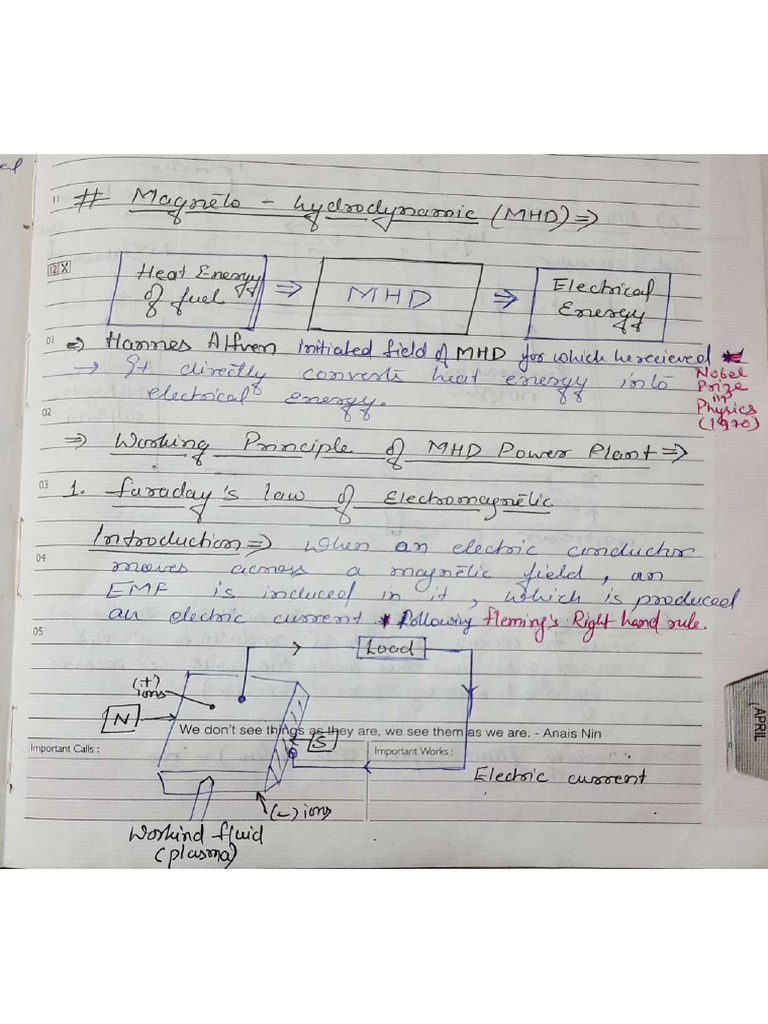 11 # Magneto - hydrodynamic (MHD) ⇒
12 X
Heat Energy of fuel ⇒ MHD ⇒ Electrical Energy
01 ⇒ Hannes Alfven Initiated field of MHD for which he recieved *
Nobel Prize in Physics (1970)
→ It directly converts heat energy into
electrical energy.
02
⇒ Working Principle of MHD Power Plant ⇒
03 1. Faraday's law of Electromagnetic
Introduction ⇒ When an electric conductor
04 moves across a magnetic field, an
EMF is induced in it, which is produced
an electric current * following fleming's Right hand rule.
05
Load
(+) ions
N
We don't see things as they are, we see them as we are. - Anais Nin
S
Important Calls :
Important Works :
Electric current
(-) ions
Workind fluid
(plasma)
APRIL